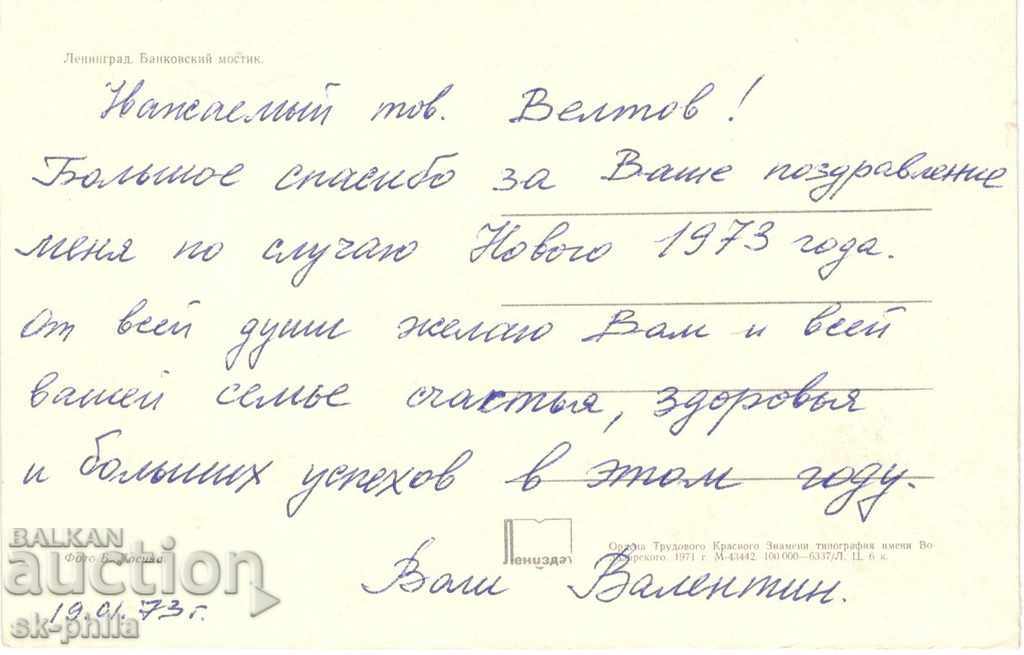 Ленинград. Банковский мостик.
Уважаемый тов. Велтов!
Большое спасибо за Ваше поздравление
меня по случаю Нового 1973 года.
От всей души желаю Вам и всей
вашей семье счастья, здоровья
и больших успехов в этом году.
Лениздат
Ордена Трудового Красного Знамени типография имени Во-
лодарского. 1971 г. М-43442. 100 000—6337/Л. Ц. 6 к.
Фото Б.
BALKAN
auction
Ваш Валентин.
19.01.73 г.
sk-phila